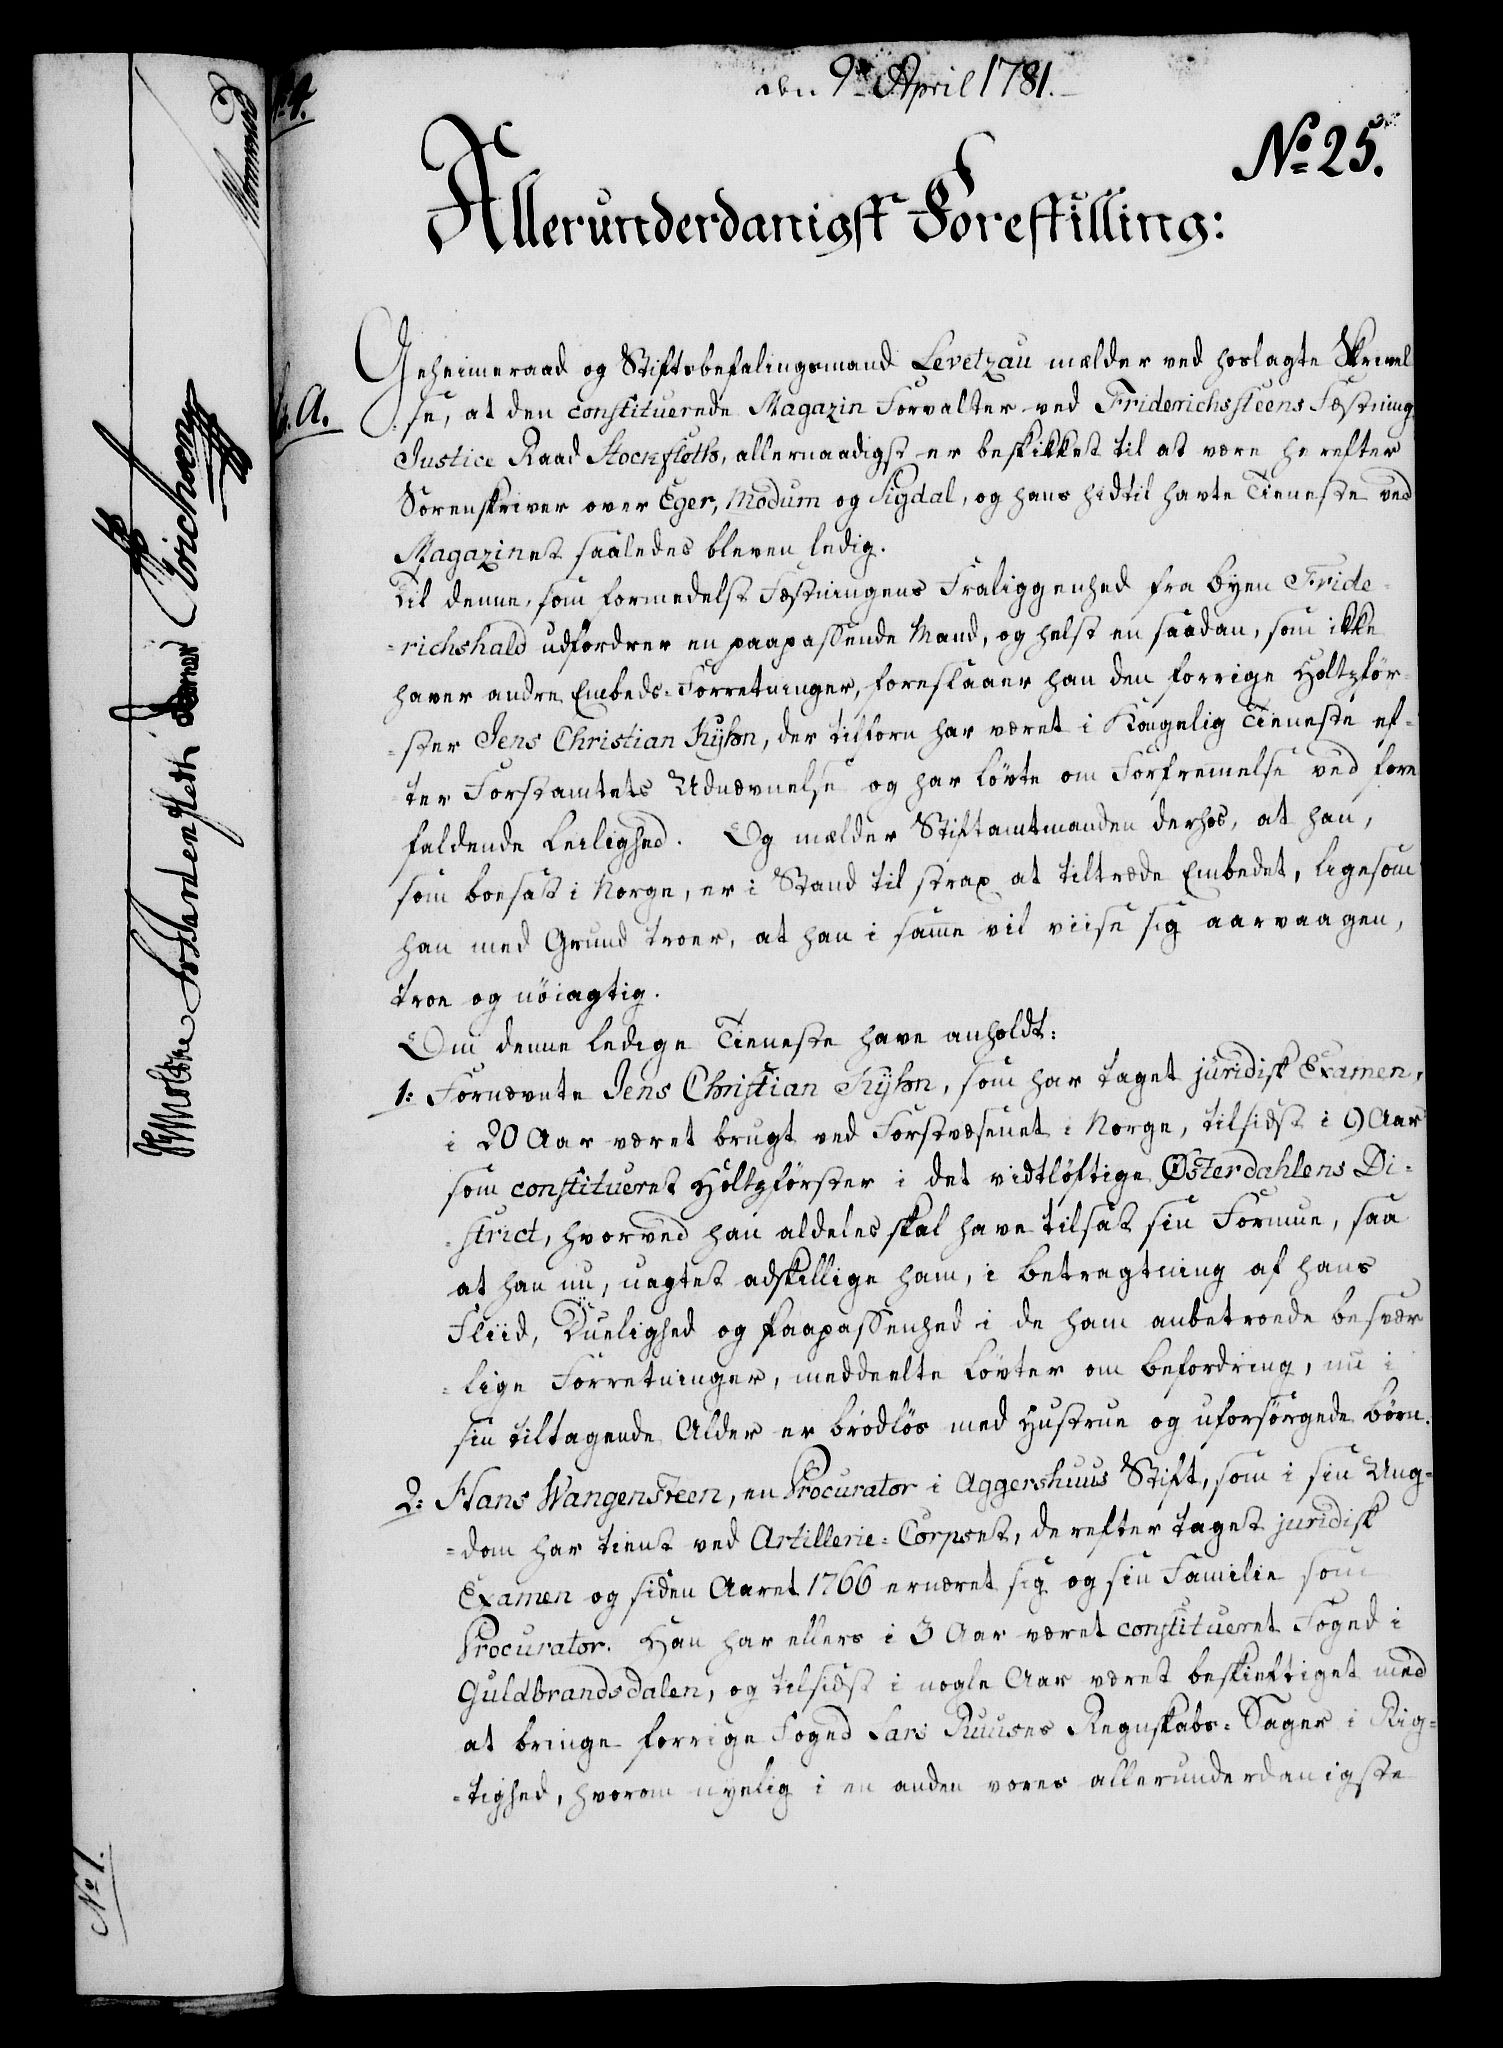 den 9de April 1781.
No 25.
Allerunderdanigst Forestilling:
A.
Geheimeraad og Stiftsbefalingsmand Levetzau mælder ved hoslagte Skrivel
se, at den constituerede Magazin Forvalter ved Friderichssteens Fæstning
Justice Raad Stockfleth, allernaadigst er beskikket til at være herefter
Sorenskriver over Eger, Modum og Sigdal, og hans hidtil havte Tieneste ved
Magazinet saaledes bleven ledig.
Til denne, som formedelst Fæstningens Fraliggenhed fra Byen Fride-
-richshald udfordrer en paapassende Mand, og helst en saadan, som ikke
haver andre Embeds-Forretninger, foreslaaer han den forrige Holtzför-
-ster Jens Christian Kyhn, der tilforn har været i Kongelig Tieneste ef-
ter Forstamtets Udnævnelse og har Løvte om Forfremelse ved fore
faldende Leilighed. Og mælder Stiftamtmanden derhos, at han,
som boesat i Norge, er i Stand til strax at tiltræde Embedet, ligesom
han med Grund troer, at han i samme vil viise sig aarvaagen,
troe og nöiagtig.
Om denne ledige Tieneste have anholdt:
1: Fornævnte Jens Christian Kyhn, som har taget juridisk Examen,
i 20 Aar været brugt ved Forstvæsenet i Norge, tilsidst i 9 Aar
som constitueret Holtzförster i det vidtløftige Østerdahlens Di-
-strict, hvorved han aldeles skal have tilsat sin Formue, saa
at han nu, uagtet adskillige ham, i Betragtning af hans
Fliid, Duelighed og Paapassenhed i de ham anbetroede besvær
-lige Forretninger, meddeelte Løvter om Befordring, nu i
sin tiltagende Alder er brödløs med Hustrue og uforsörgede Børn.
2: Hans Wangensteen, en Procurator i Aggershuus Stift, som i sin Ung-
-dom har tient ved Artillerie-Corpset, derefter taget juridisk
Examen og siden Aaret 1766 ernæret sig og sin Familie som
Procurator. Han har ellers i 3 Aar været constitueret Foged i
Guldbrandsdalen, og tilsidst i nogle Aar været beskieftiget med
at bringe forrige Foged Lars Ruuses Regnskabs-Sager i Rig-
-tighed, hvorom nyelig i en anden vores allerunderdanigste
Moltke
No 1.